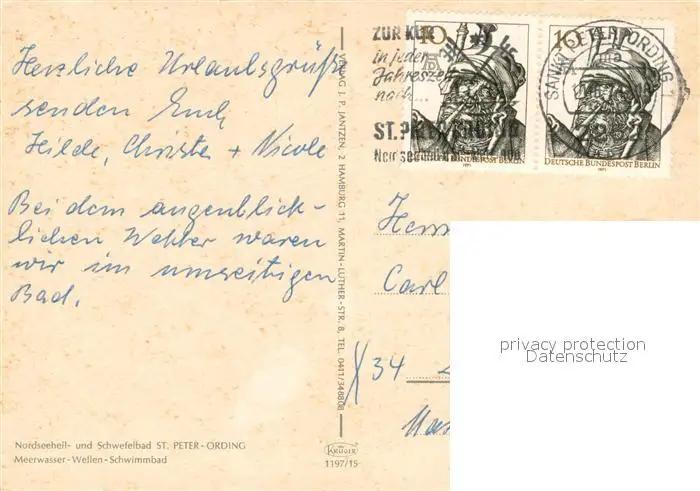 Herzliche Urlaubsgrüße
senden Euch
Hilde, Christa + Nicole
Bei dem augenblick-
lichen Wetter waren
wir im umseitigen
Bad.
Nordseeheil- und Schwefelbad ST. PETER-ORDING
Meerwasser-Wellen-Schwimmbad
VERLAG J. P. JANTZEN, 2 HAMBURG 11, MARTIN-LUTHER-STR. 8, TEL. 0411/348808
KRÜGER
1197/15
ZUR KUR
in jeder
Jahreszeit
nach...
ST. PETER-ORDING
10
10
DEUTSCHE BUNDESPOST BERLIN
1971
DEUTSCHE BUNDESPOST BERLIN
1971
SANKT PETER-ORDING 1
Herrn
Carl
34
privacy protection
Datenschutz